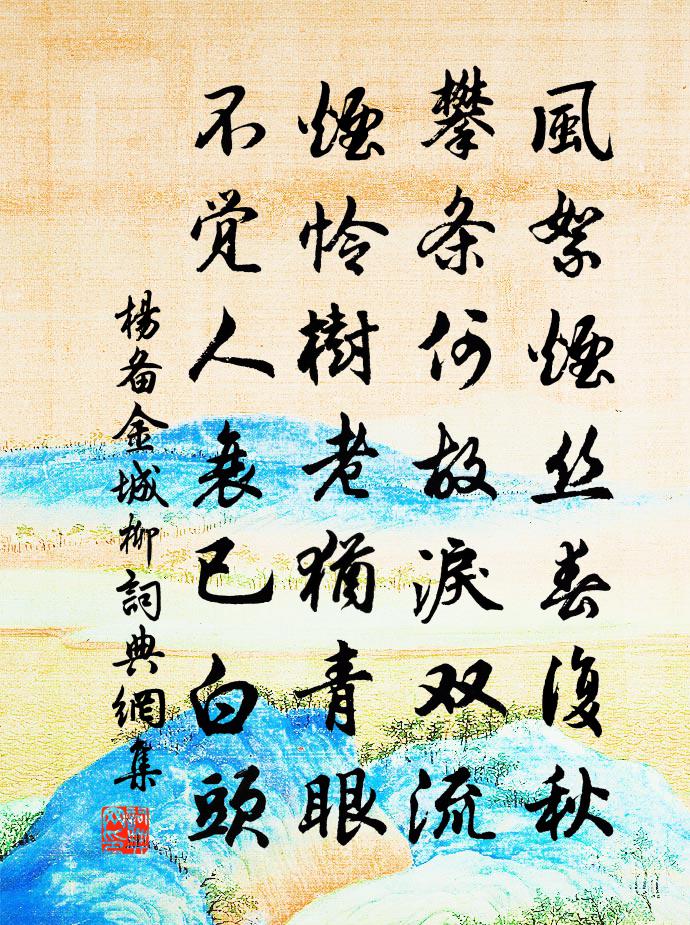 風絮煙丝春復秋
攀条何故淚双流
煙怜樹老猶青眼
不覚人衰已白頭
楊备金城柳詞典網集